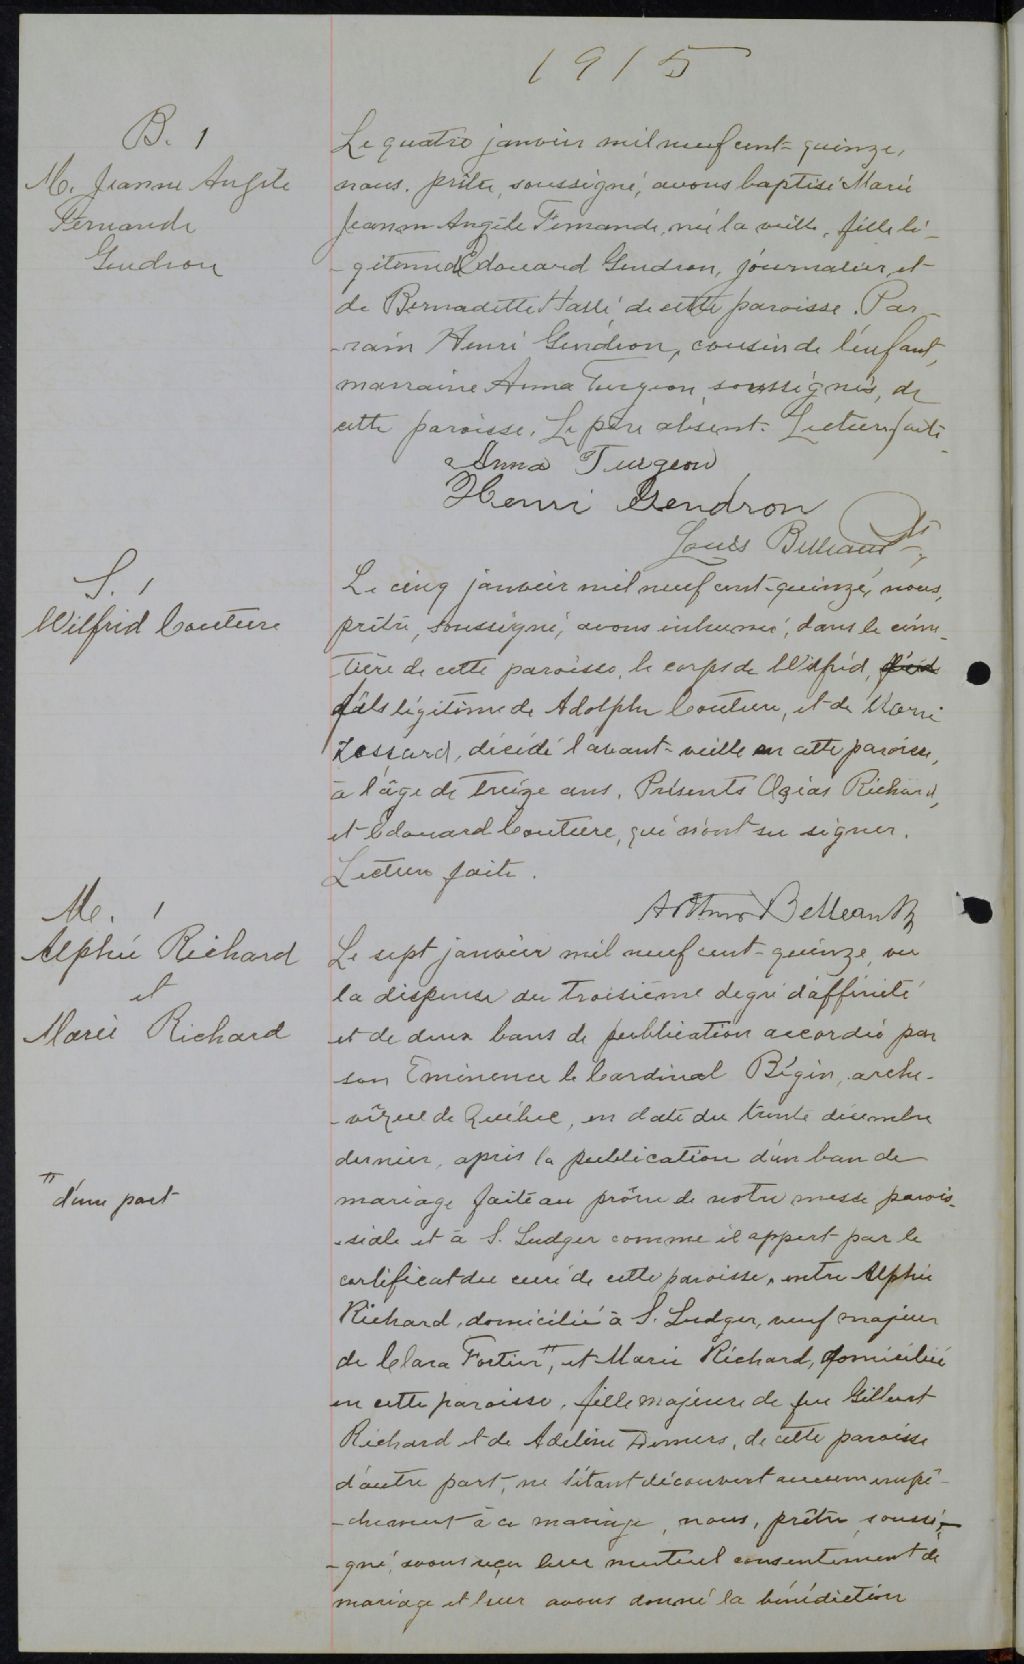 1915
B. 1
M. Jeanne Angèle
Fernande
Gendron
Le quatre janvier mil neuf cent-quinze,
nous, prêtre, soussigné, avons baptisé Marie
Jeanne Angèle Fernande, née la veille, fille lé-
-gitime d'Edouard Gendron, journalier, et
de Bernadette Hallé de cette paroisse. Par-
-rain Henri Gendron, cousin de l'enfant,
marraine Anna Turgeon, soussignés, de
cette paroisse. Le père absent. Lecture faite.
Anna Turgeon
Henri Gendron
Louis Belleau
S. 1
Wilfrid Couture
Le cinq janvier mil neuf cent-quinze, nous,
prêtre, soussigné, avons inhumé, dans le cime-
-tière de cette paroisse, le corps de Wilfrid,
fils légitime de Adolphe Couture, et de Marie
Lessard, décédé l'avant-veille en cette paroisse,
à l'âge de treize ans. Présents Ozias Richard,
et Edouard Couture, qui n'ont su signer.
Lecture faite.
Arthur Belleau Ptr
M. 1
Alphée Richard
et
Marie Richard
Le sept janvier mil neuf cent-quinze, vu
la dispense du troisième degré d'affinité
et de deux bans de publication accordée par
son Eminence le Cardinal Bégin, arche-
-vêque de Québec, en date du trente décembre
dernier, après la publication d'un ban de
mariage faite au prône de notre messe parois-
-siale et à S. Ludger comme il appert par le
certificat du curé de cette paroisse, entre Alphée
Richard, domicilié à S. Ludger, veuf majeur
de Clara Fortier", et Marie Richard, domiciliée
en cette paroisse, fille majeure de feu Gilbert
Richard et de Adeline Demers, de cette paroisse
d'autre part, ne s'étant découvert aucun empê-
-chement à ce mariage, nous, prêtre soussi-
-gné, avons reçu leur mutuel consentement de
mariage et leur avons donné la bénédiction
" d'une part